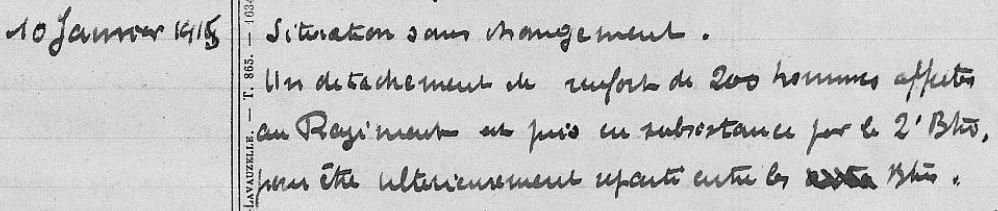 10 Janvier 1915 Situation sans changement.
Un détachement de renfort de 200 hommes affectés
au Régiment est pris en subsistance par le 2e Btn,
pour être ultérieurement réparti entre les Btns.
LAVAUZELLE. — T. 865. — 1634